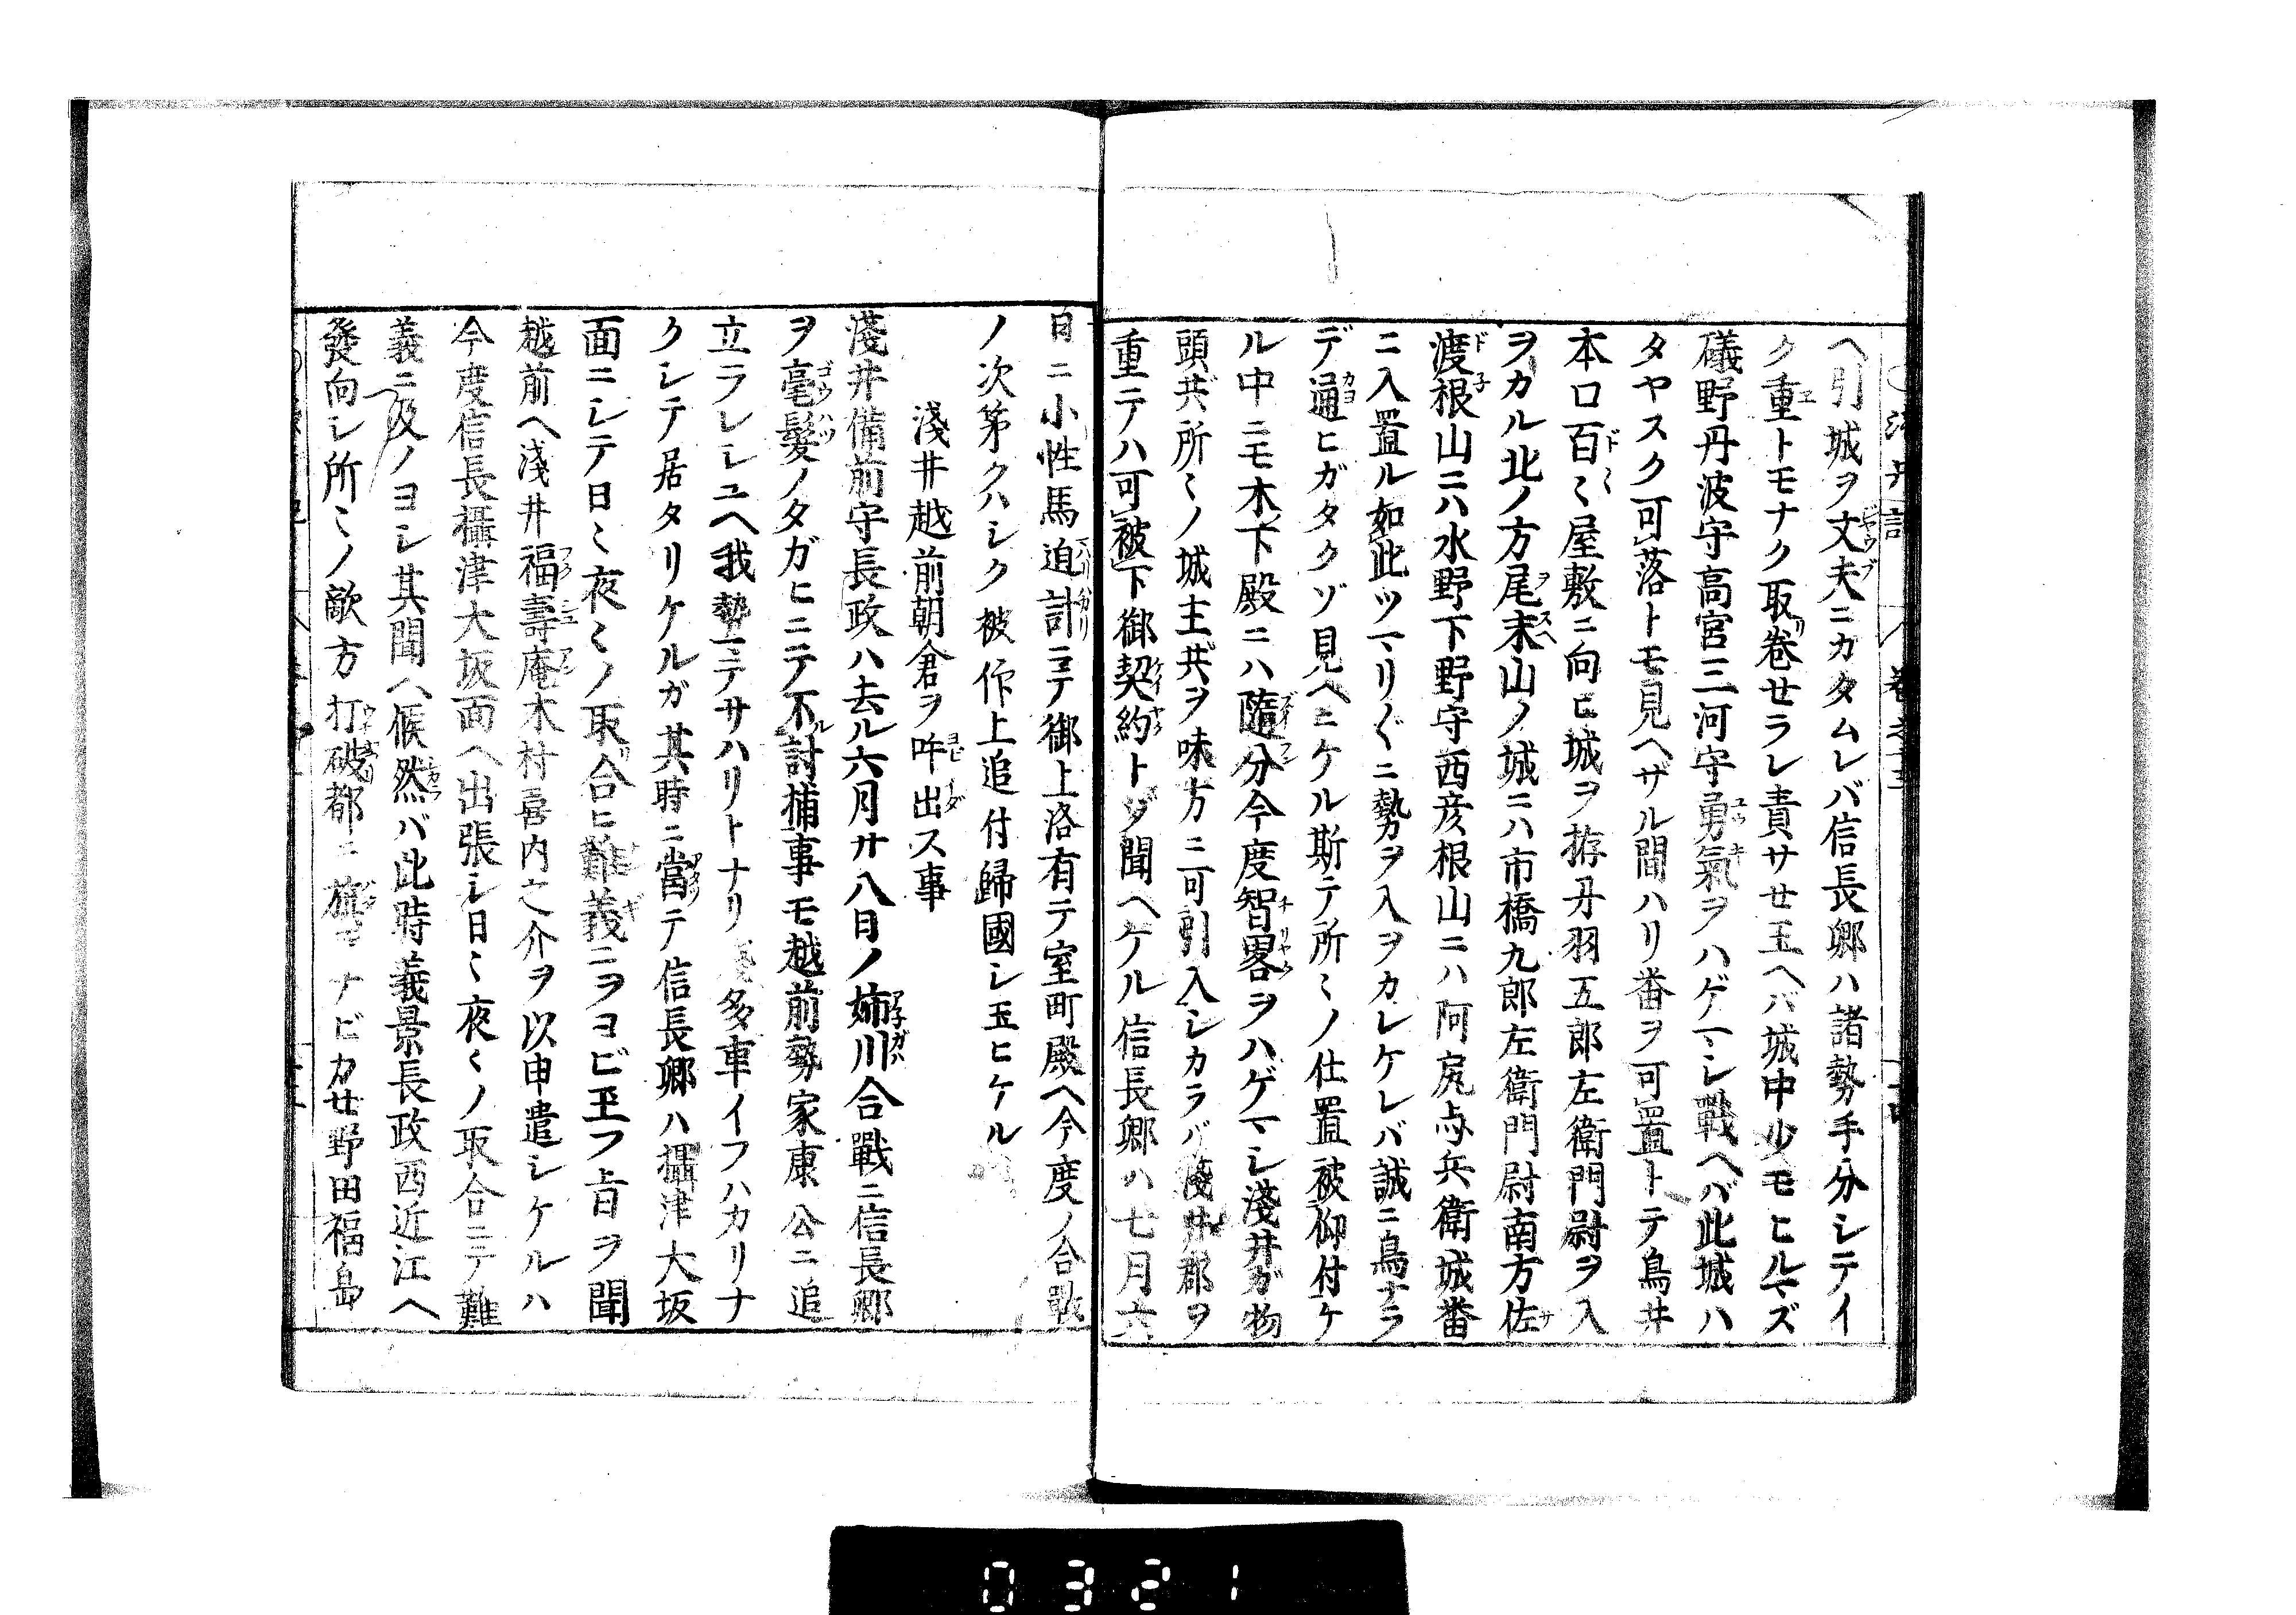 ヘ引城ヲ丈夫ニカタムレバ信長郷ハ諸勢手分シテイ
ク重トモナク取巻セラレ責サセ玉ヘバ城中少モヒルマズ
礒野丹波守高宮三河守勇氣ヲハゲマシ戰ヘバ此城ハ
タヤスク可落トモ見ヘザル間ハリ番ヲ可置トテ鳥井
本口百〻屋敷ニ向ヒ城ヲ拵丹羽五郎左衛門尉ヲ入
ヲカル北ノ方尾末山ノ城ニハ市橋九郎左衛門尉南方佐
渡根山ニハ水野下野守西彦根山ニハ阿與兵衛城番
ニ入置ル如此ツマリ〱ニ勢ヲ入ヲカレケレバ誠ニ鳥ナラ
デ通ヒガタクゾ見ヘニケル斯テ所〻ノ仕置被仰付ケ
ル中ニモ木下殿ニハ隨分今度智畧ヲハゲマシ淺井ガ物
頭共所〻ノ城主共ヲ味方ニ可引入シカラバ淺井郡ヲ
重テハ可被下御契約トゾ聞ヘケル信長郷ハ七月六
日ニ小性馬迫計ニテ御上洛有テ室町殿ヘ今度ノ合戰
ノ次第クハシク被仰上追付歸國シ玉ヒケル
淺井越前朝倉ヲ吽出ス事
淺井備前守長政ハ去ル六月廿八日ノ姉川合戰ニ信長郷
ヲ毫髮ノタガヒニテ不討捕事モ越前勢家康公ニ追
立ラレシユヘ我勢ニテサハリトナリ多車イフハカリナ
クシテ居タリケルガ其時ニ當テ信長郷ハ攝津大坂
面ニシテ日〻夜〻ノ取合ヒ難義ニヲヨビ玉フ旨ヲ聞
越前ヘ淺井福壽庵木村喜内之介ヲ以申遣シケルハ
今度信長攝津大坂面ヘ出張シ日〻夜〻ノ取合ニテ難
義ニ及ノヨシ其聞ヘ候然バ此時義景長政西近江ヘ
發向シ所〻ノ敵方打破都ニ旗ヲナビカせ野田福島
0321